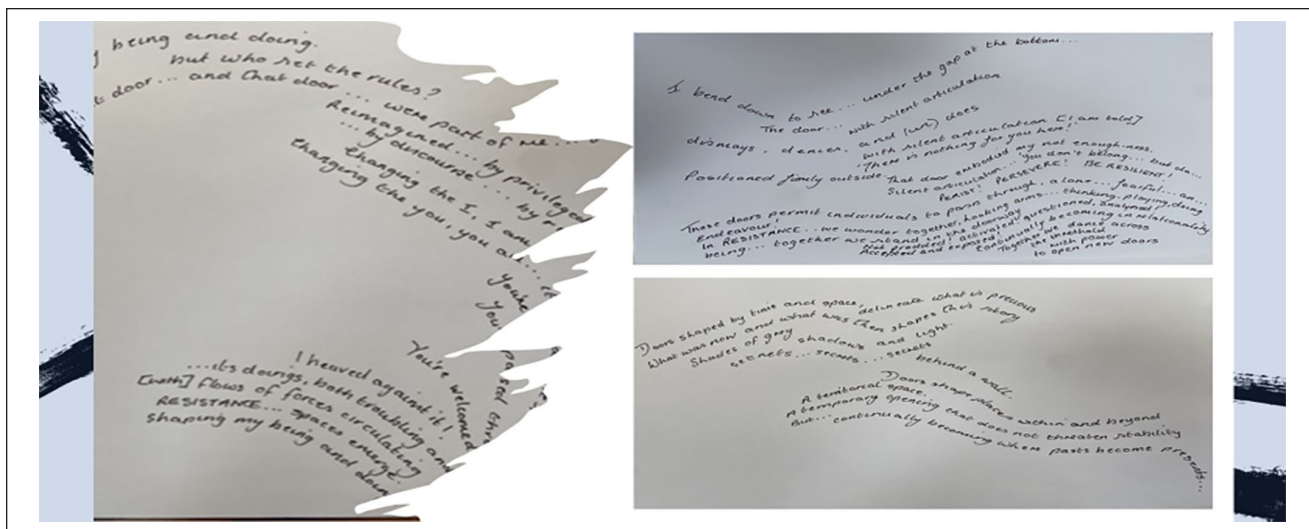 being and doing.
but who set the rules?
door... and that door... were part of me...
Reimagined... by privileged
... by discourse... by
changing the I, I am
changing the you, you
you're
You
You're welcomed
passed thr
I heaved against it!
...its doings, both troubling and
[with] flows of forces circulating
RESISTANCE... spaces emerge.
shaping my being and doin
I bend down to see... under the gap at the bottom...
The door... with silent articulation
dismays, dences, and (un) does
with silent articulation [I am told]
There is nothing for you here!
Positioned firmly outside.
That door embodied my not enough-ness.
Silent articulation... 'You don't belong... but do...
PERSIST! PERSEVERE! BE RESILIENT!
Those doors permit individuals to pass through, alone... fearful... an...
Endeavour!
In RESISTANCE... we wonder together, hooking arms... thinking, playing, doing
being... together we stand in the doorway
Not prodded, activated, questioned, analysed
Accepted and exposed! Continually becoming in relationality
Together we dance across
the threshold
with power
to open new doors
Doors shaped by time and space, delineate what is precious
What was now and what was then shapes this story
Shades of grey shadows and light.
secrets... secrets... secrets
behind a wall.
Doors shape places within and beyond
A territorial space.
A temporary opening that does not threaten stability
But... continually becoming where pasts become presents...